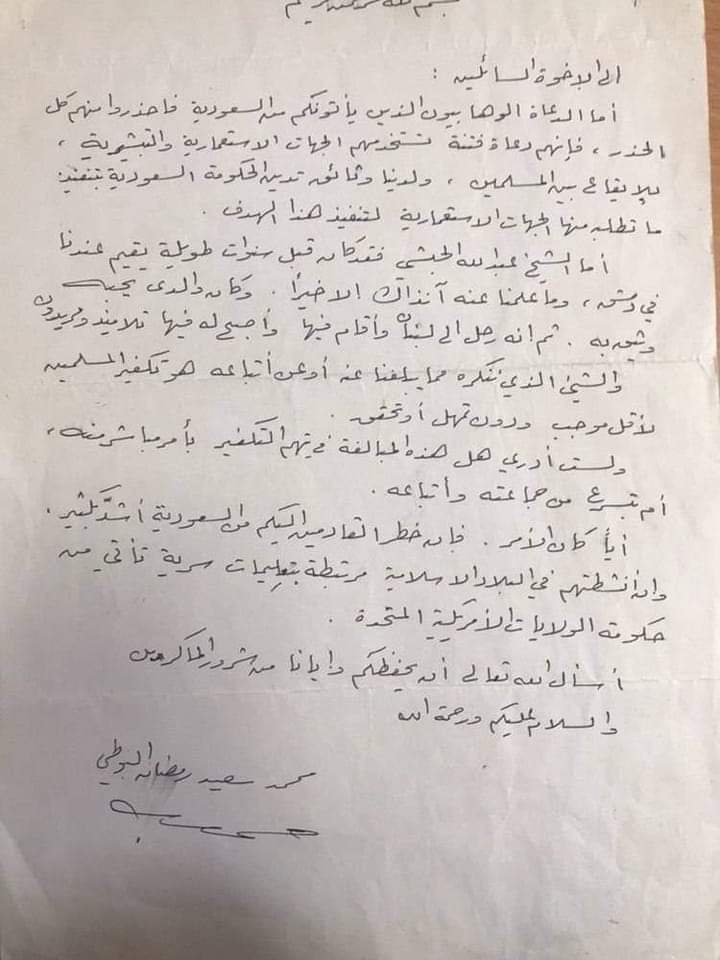 بسم الله الرحمن الرحيم
الى الاخوة السائلين :
أما الدعاة الوهابيون الذين يأتونكم من السعودية فاحذروا منهم كل
الحذر ، فإنهم دعاة فتنة تستخدمهم الجهات الاستعمارية والتبشيرية ،
للإيقاع بين المسلمين ، ولدينا وثائق تدين الحكومة السعودية بتنفيذ
ما تطلبه منها الجهات الاستعمارية لتنفيذ هذا الهدف .
أما الشيخ عبدالله الحبشي فقد كان قبل سنوات طويلة يقيم عندنا
في دمشق ، وما علمنا عنه آنذاك الا خيراً . وكان والدي يحبه
ويثق به . ثم انه رحل الى لبنان وأقام فيها وأصبح له فيها تلاميذ ومريدون
والشيئ الذي ننكره مما يبلغنا عنه أو عن أتباعه هو تكفير المسلمين
لأقل موجب ودون تمهل أو تحقق .
ولست أدري هل هذه المبالغة في تهم التكفير بأمر مباشر منه ،
أم بتسرع من جماعته وأتباعه .
أياً كان الأمر . فإن خطر القادمين اليكم من السعودية أشدّ بكثير .
وان أنشطتهم في البلاد الاسلامية مرتبطة بتعليمات سرية تأتي من
حكومة الولايات الأمريكية المتحدة .
أسأل الله تعالى أن يحفظكم وإيانا من شرور الماكرين
والسلام عليكم ورحمة الله
محمد سعيد رمضان البوطي